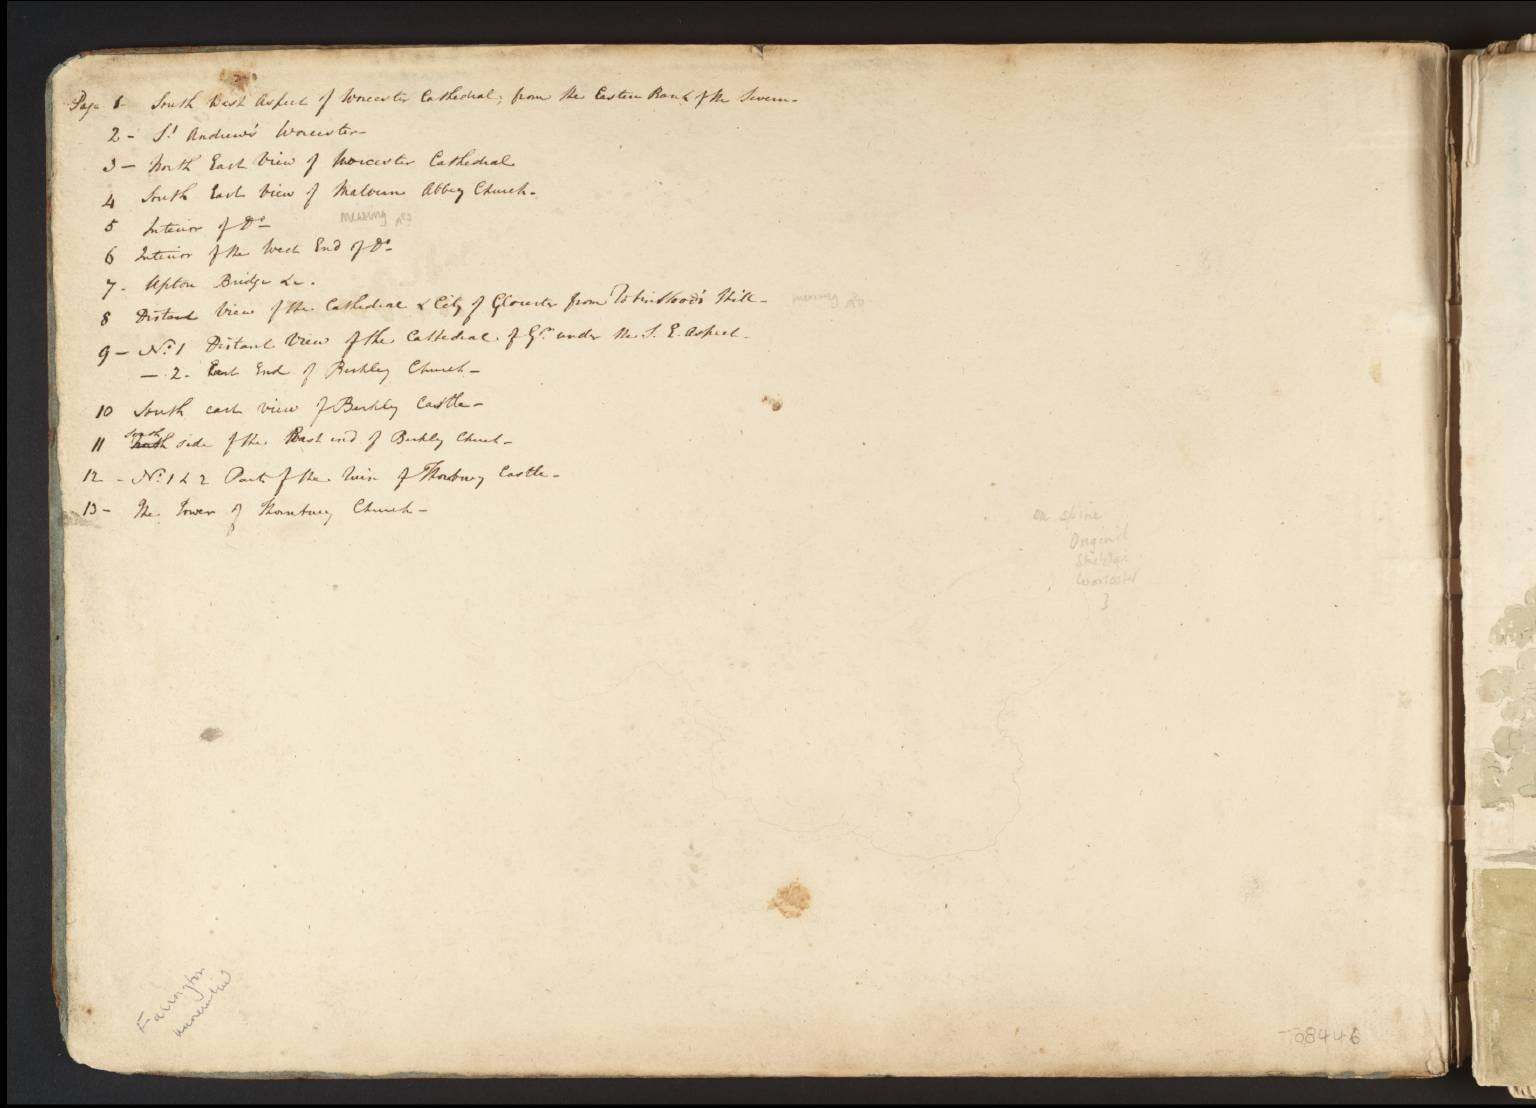 Page 1 South West Aspect of Worcester Cathedral, from the Eastern Bank of the Severn-
2 - St Andrew's Worcester-
3 - North East View of Worcester Cathedral
4 South East View of Malvern Abbey Church-
5 Interior of Do- missing
6 Interior of the West End of Do-
7 - Upton Bridge &c.
8 Distant View of the Cathedral & City of Gloucester from Robinhood's Hill- missing
9 - No. 1 Distant View of the Cathedral of Gr. under the S. E. Aspect-
- 2 - East End of Berkley Church-
10 South east view of Berkley Castle-
11 South side of the East end of Berkley Church-
12 - No. 1 & 2 Part of the Ruin of Thornbury Castle-
13 - The Tower of Thornbury Church-
on spine
Original
Sketches
Worcester
}
Farington
38446